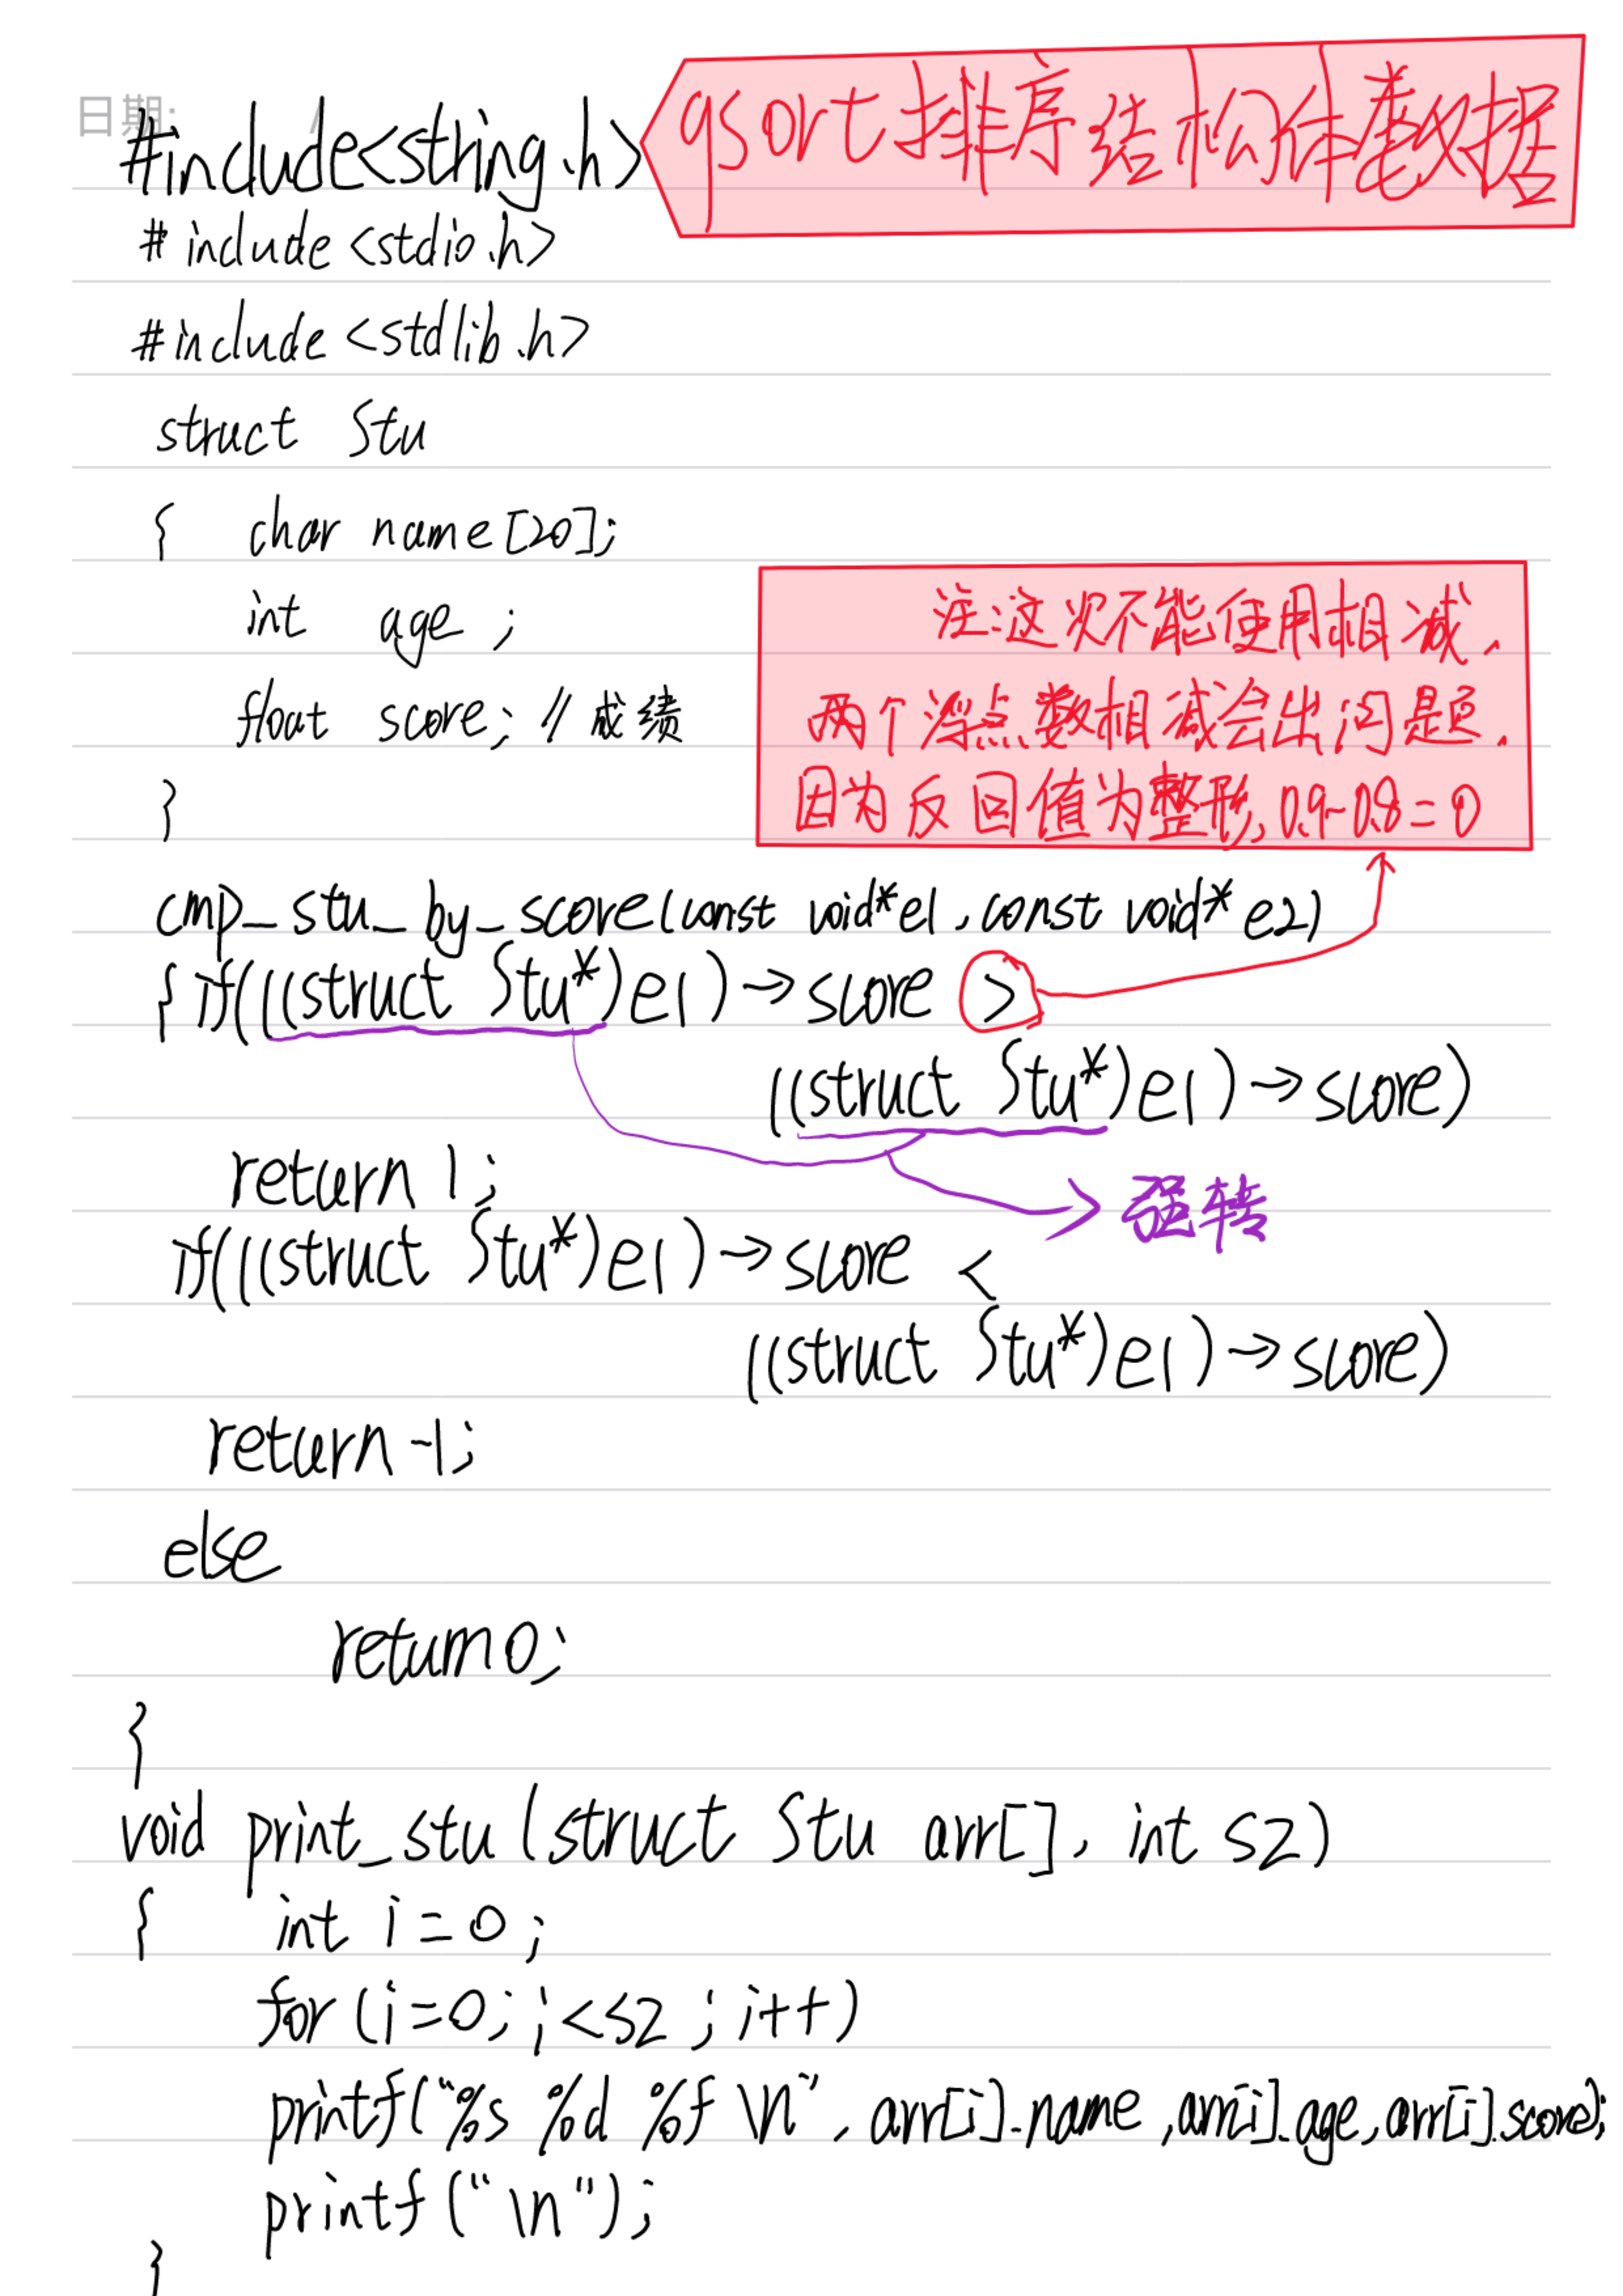 日期: /
#include<string.h>
qsort排序结构体数据
#include<stdio.h>
#include<stdlib.h>
struct Stu
{ char name[20];
int age;
float score; //成绩
}
注:这次不能使用相减,
两个浮点数相减会出问是页,
因为反回值为整形,0.9-0.8=0
cmp_stu_by_score(const void*e1,const void*e2)
{ if(((struct Stu*)e1)->score >
((struct Stu*)e1)->score)
return 1;
强转
if(((struct Stu*)e1)->score <
((struct Stu*)e1)->score)
return -1;
else
return 0;
}
void print_stu(struct Stu arr[], int sz)
{ int i=0;
for(i=0;i<sz;i++)
printf("%s %d %f \n", arr[i].name,arr[i].age,arr[i].score);
printf("\n");
}